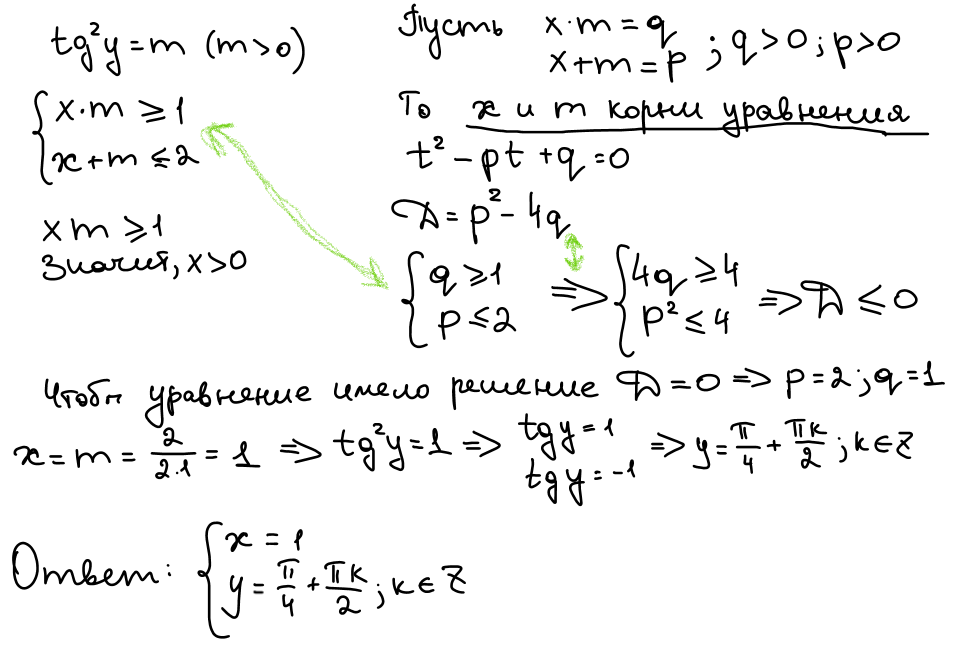 tg²y = m (m>0)
{ x·m ≥ 1
x+m ≤ 2
xm ≥ 1
Значит, x>0
Пусть x·m = q
x+m = p ; q>0; p>0
То x и m корни уравнения
t² - pt + q = 0
D = p² - 4q
{ q ≥ 1
p ≤ 2
=> { 4q ≥ 4
p² ≤ 4
=> D ≤ 0
Чтобы уравнение имело решение D = 0 => p = 2; q = 1
x = m = 2/2·1 = 1 => tg²y = 1 => tgy = 1
tgy = -1
=> y = π/4 + πk/2 ; k ∈ Z
Ответ: { x = 1
y = π/4 + πk/2 ; k ∈ Z